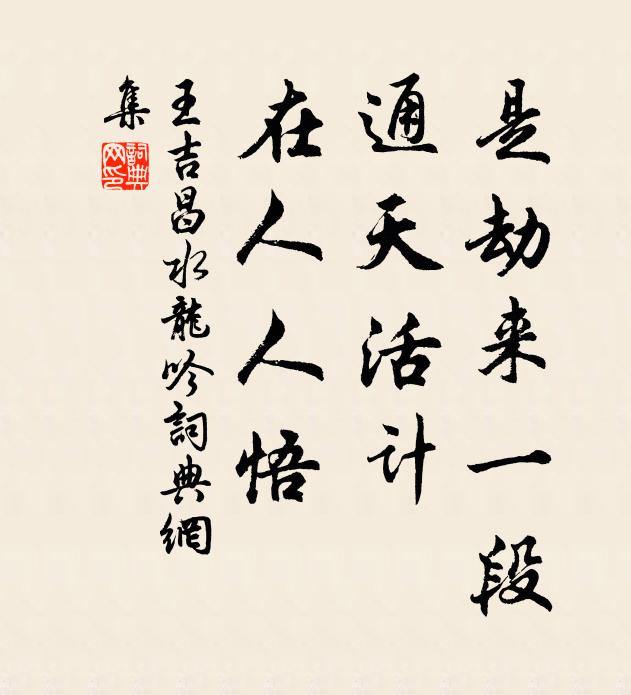 是劫来一段
通天活计
在人人悟
王吉昌水龍吟詞典網
集
詞典網印